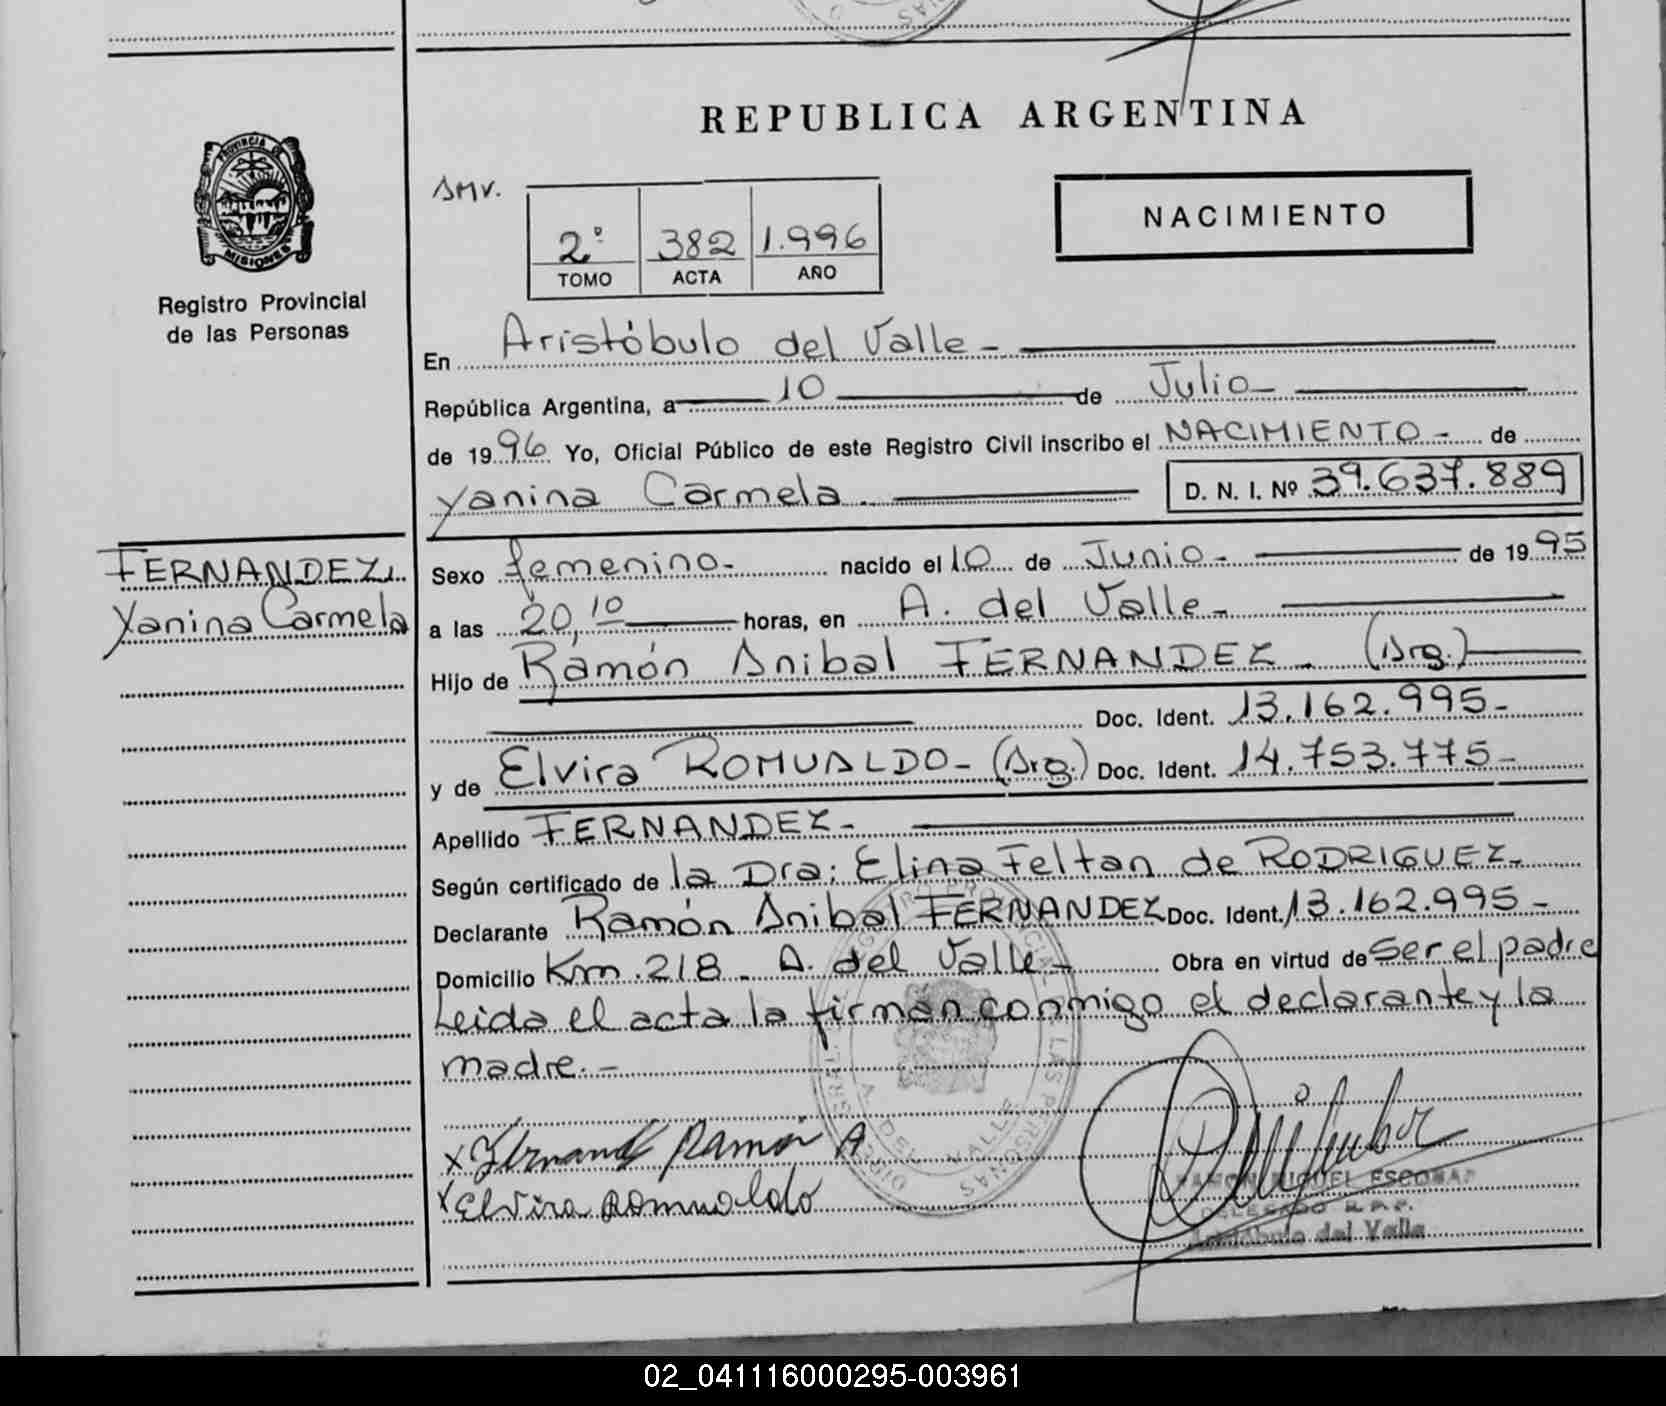 REPUBLICA ARGENTINA
PROVINCIA DE
MISIONES
Registro Provincial
de las Personas
SMV.
2º 382 1.996
TOMO ACTA AÑO
NACIMIENTO
En Aristóbulo del Valle -
República Argentina, a 10 de Julio -
de 1996 Yo, Oficial Público de este Registro Civil inscribo el NACIMIENTO - de
Yanina Carmela D. N. I. Nº 39.637.889
FERNANDEZ,
Yanina Carmela
Sexo femenino.- nacido el 10 de Junio - de 1995
a las 20,10 horas, en A. del Valle -
Hijo de Ramón Anibal FERNANDEZ - (Arg.)
Doc. Ident. 13.162.995-
y de Elvira ROMUALDO - (Arg.) Doc. Ident. 14.753.775-
Apellido FERNANDEZ -
Según certificado de la Dra: Elina Feltan de RODRIGUEZ -
Declarante Ramón Anibal FERNANDEZ Doc. Ident. 13.162.995 -
Domicilio Km. 218 - A. del Valle - Obra en virtud de ser el padre
Leida el acta la firman conmigo el declarante y la
madre. -
x Fernandez Ramon A
x Elvira Romualdo
RAMON MIGUEL ESCOBAR
DELEGADO R.P.P.
Aristóbulo del Valle
A. DEL VALLE
02_041116000295-003961